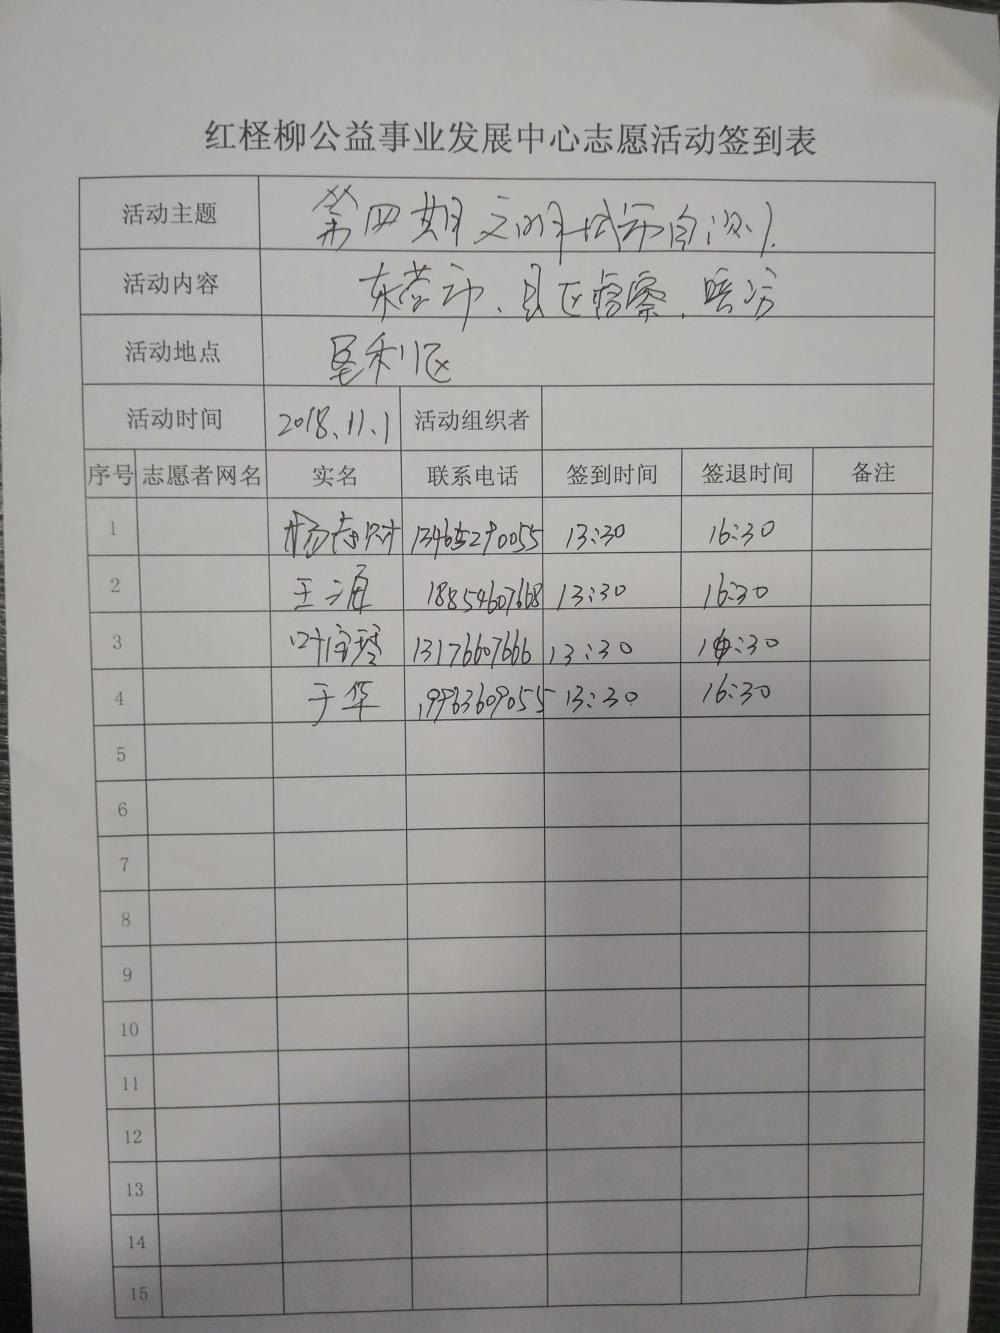 红柽柳公益事业发展中心志愿活动签到表
活动主题 第四期文明城市自测
活动内容 东营市、县区督察、暗访
活动地点 垦利区
活动时间 2018.11.1 活动组织者
序号 志愿者网名 实名 联系电话 签到时间 签退时间 备注
1 杨 13465290055 13:30 16:30
2 王海 18854607668 13:30 16:30
3 叶宝琴 13176607666 13:30 16:30
4 于华 19963609055 13:30 16:30
5
6
7
8
9
10
11
12
13
14
15